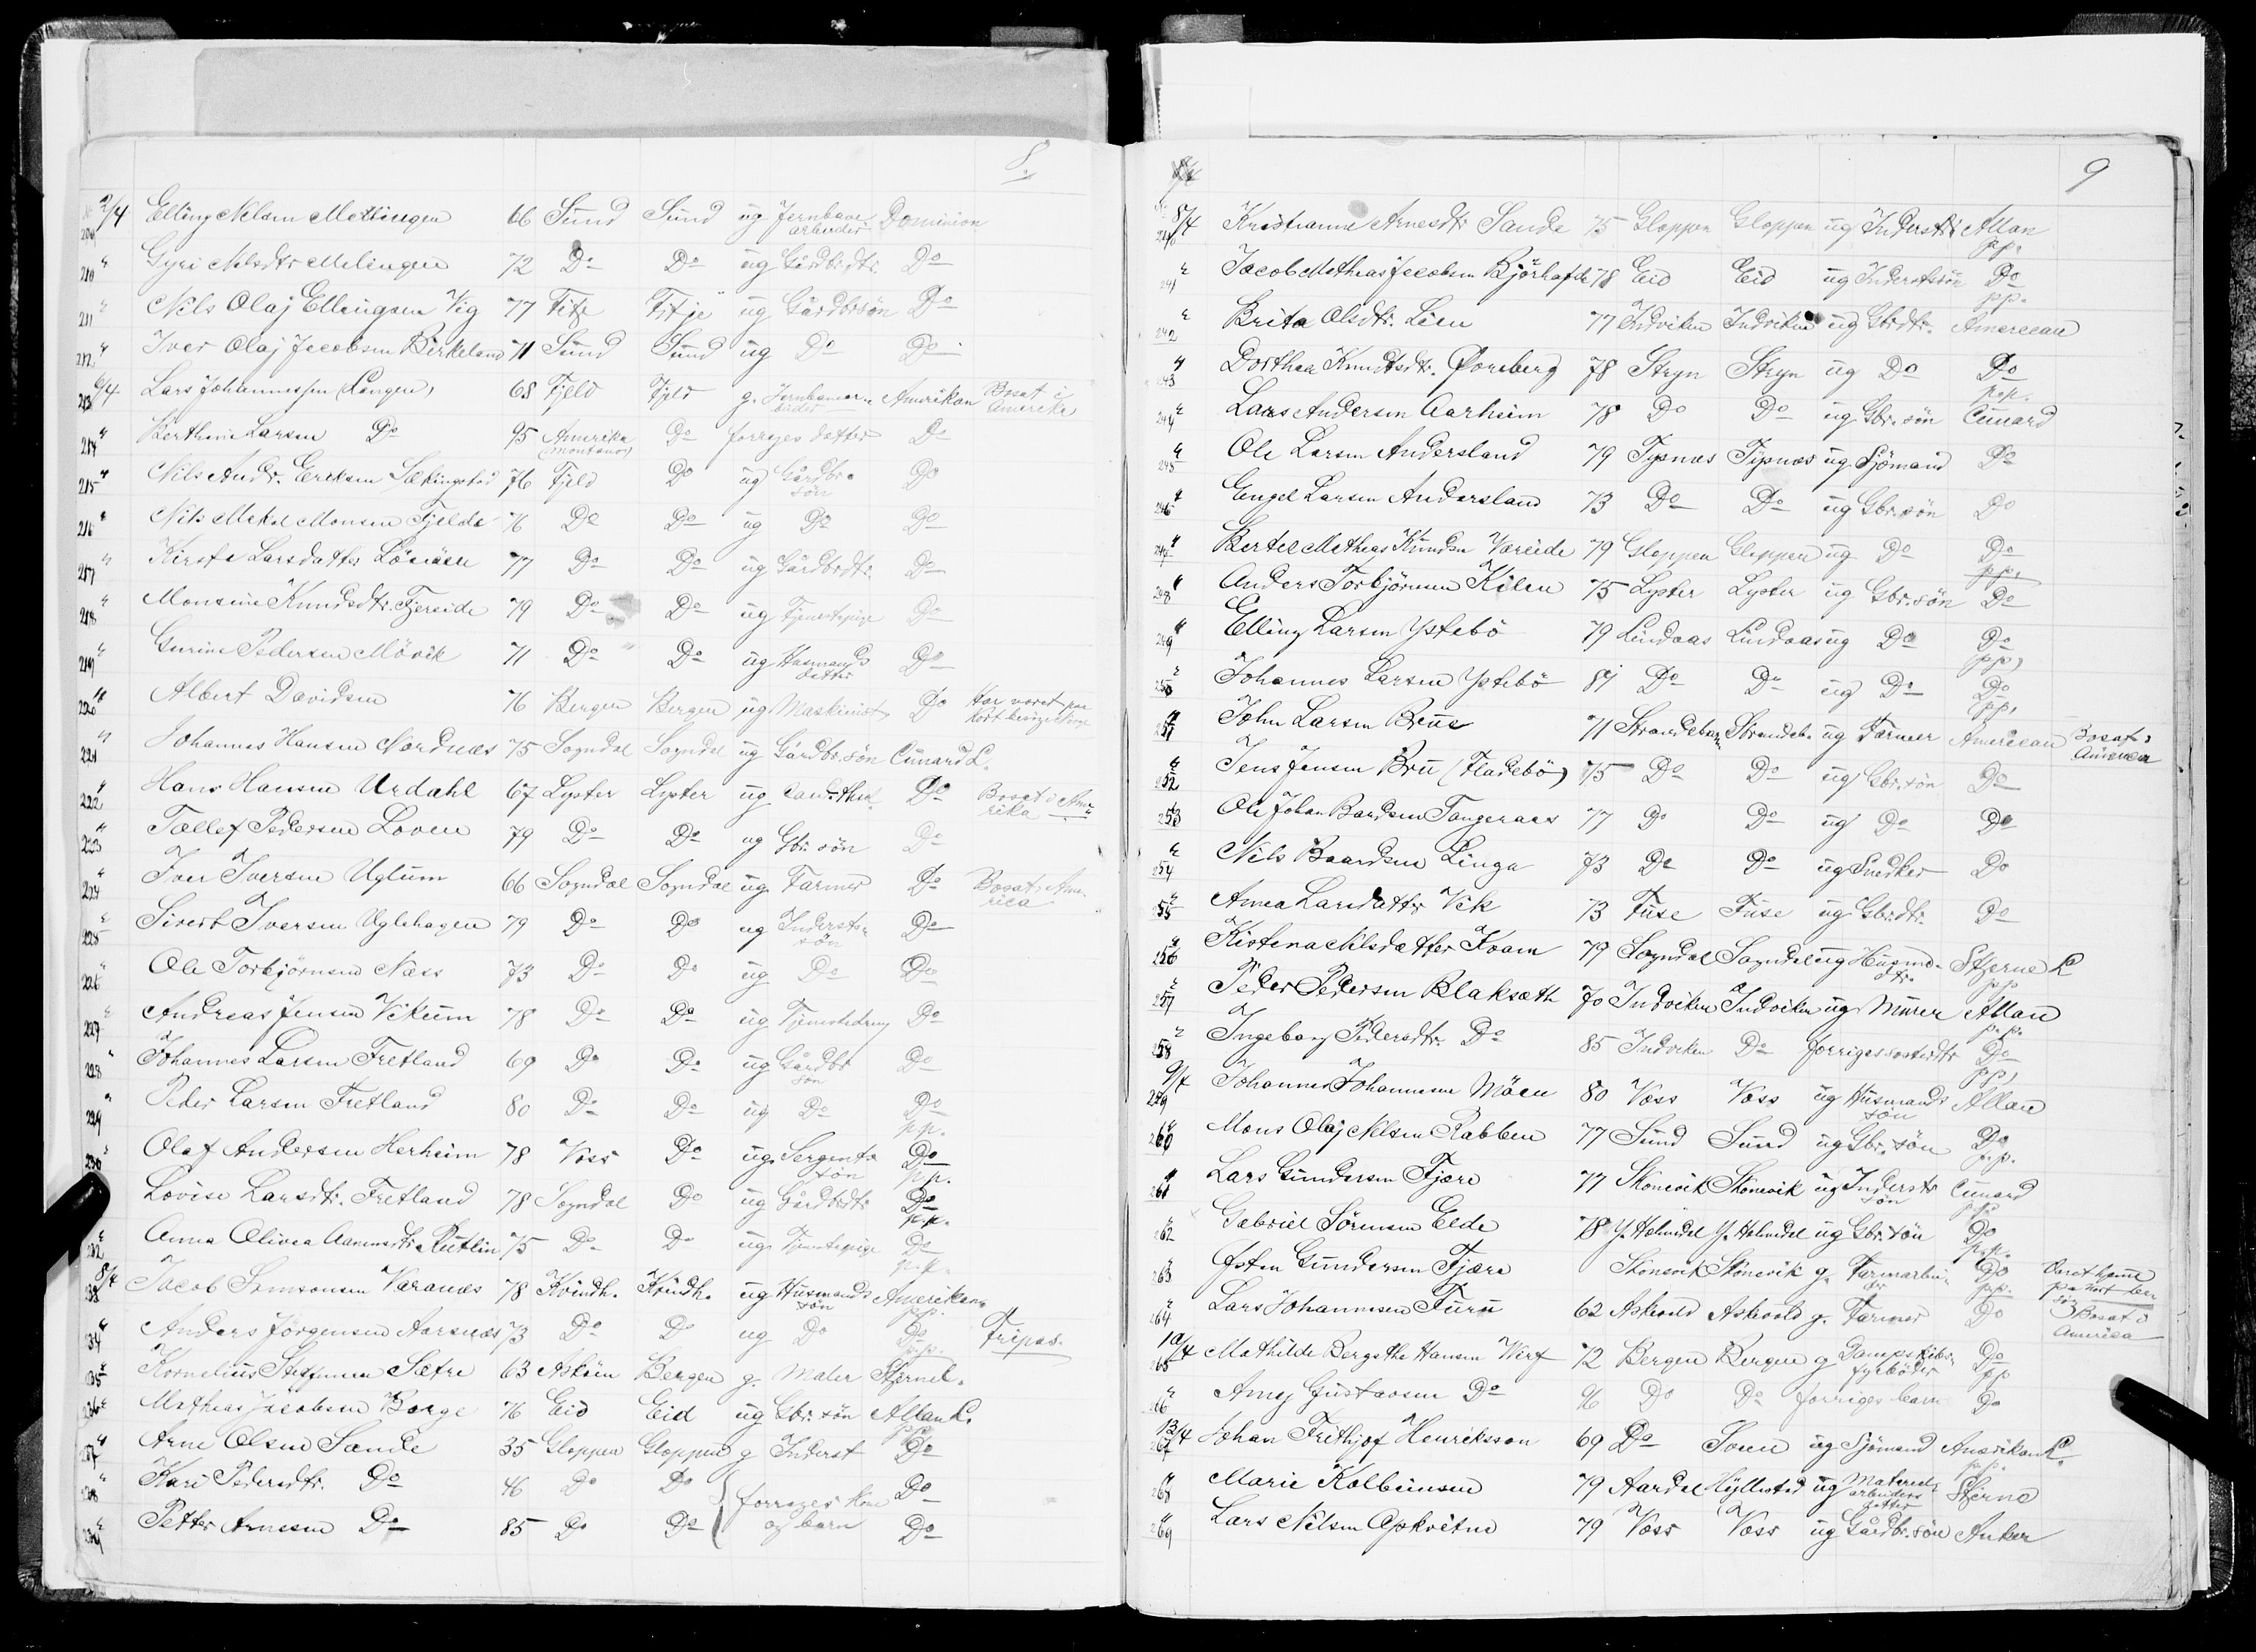 8.
2/4 209 Elling Nilsen Mellingen 66 Sund Sund ug Jernbane arbeider Dominion
" 210 Gyri Nilsdtr Melingen 72 Do Do ug Gårdbrdtr. Do
" 211 Nils Olaj Ellingsen Vig 77 Fitje Fitje ug Gårdbrsön Do
" 212 Iver Olaj Jacobsen Birkeland 71 Sund Sund ug Do Do
6/4 213 Lars Johannessen (Langen) 68 Fjeld Fjeld g. Jernbanear- beider Amerikan Bosat i Amerika
" 214 Berthine Larsen Do 95 Amerika (Montana) Do forriges datter Do
" 215 Nils Andr. Eriksen Sekingstad 76 Fjeld Do ug Gårdbr. sön Do
" 216 Nils Mikal Monsen Fjelde 76 Do Do ug Do Do
" 217 Kirsti Larsdatter Lönöen 77 Do Do ug Gårdbrdtr. Do
" 218 Monsine Knudsdtr. Fjereide 79 Do Do ug Tjenestepige Do
" 219 Gurine Pedersen Mövik 71 Do Do ug Husmands datter Do
" 220 Albert Davidsen 76 Bergen Bergen ug Maskinist Do Har været paa kort besög i Norge
" 221 Johannes Hansen Nordnæs 75 Sogndal Sogndal ug Gårdbr. sön Cunard L.
" 222 Hans Hansen Urdahl 67 Lyster Lyster ug Do Bosat i Ame rika
" 223 Tollef Pedersen Loven 79 Do Do ug Gbr. sön Do
" 224 Iver Iversen Uglum 66 Sogndal Sogndal ug Farmer Do Bosat i Ame rica
" 225 Sivert Iversen Uglehagen 79 Do Do ug Inderst- sön Do
" 226 Ole Torbjörnsen Næss 73 Do Do ug Do Do
" 227 Andreas Jensen Vikum 78 Do Do ug Tjenestedreng Do
" 228 Johannes Larsen Fretland 69 Do Do ug Gårdbr sön Do
" 229 Peder Larsen Fretland 80 Do Do ug Do Do pp.
" 230 Olaf Andersen Herheim 78 Voss Do ug. Sergents sön Do pp.
Lovise Larsdtr. Fretland 78 Sogndal Do ug Gårdbrdtr Do p.p.
" 232 Anna Olivea Aamundsdtr. Rutlin 75 Do Do ug. Tjenestepige Do p.p.
8/4 233 Jacob Samsonsen Varanæs 78 Kvindh. Kvindh. ug Husmands sön Amerikan pp.
" 234 Anders Jörgensen Aarsnæs 73 Do Do ug Do Do p.p. Fripas.
" 235 Kornelius Steffensen Sætre 63 Asköen Bergen g. Maler Stjernel.
236 Mathias Jacobsen Borge 76 Eid Eid ug Gbr. sön Allan L. pp.
" 237 Arne Olsen Sande 35 Gloppen Gloppen g Inderst Do
" 238 Kari Pedersdtr. Do 46 Do Do forriges kone og barn Do
" 239 Petter Arnesen Do 85 Do Do Do
9
8/4 240 Kristianne Arnesdtr Sande 75 Gloppen Gloppen ug Inderstdtr Allan pp.
" 241 Jacob Mathias Jacobsen Bjørlofde 78 Eid Eid ug Inderstsön Do pp.
" 242 Brita Olsdtr. Lien 77 Indviken Indviken ug Gbrdtr. American
" 243 Dorthea Knudsdtr. Øvreberg 78 Stryn Stryn ug Do Do p.p.
" 244 Lars Andersen Aarheim 78 Do Do ug Gbr. sön Cunard
" 245 Ole Larsen Andersland 79 Tysnæs Tysnæs ug Sjömand Do
" 246 Engel Larsen Andersland 73 Do Do ug Gbr. sön Do
" 247 Bertel Mathias Knudsen Vereide 79 Gloppen Gloppen ug Do Do pp.
" 248 Anders Torbjörnsen Kilen 75 Lyster Lyster ug Gbr. sön Do
" 249 Elling Larsen Ystebö 79 Lindaas Lindaas ug Do Do pp.
" 250 Johannes Larsen Ystebö 81 Do Do ug Do Do pp.
" 251 John Larsen Brue 71 Strandebarm Strandeb. ug Farmer American Bosat i America
" 252 Jens Jensen Bru (Fladebö) 75 Do Do ug Gbr. sön Do
253 Ole Johan Baardsen Tangeraas 77 Do Do ug Do Do
" 254 Nils Baardsen Linga 73 Do Do ug Snedker Do
" 255 Anna Larsdatter Vik 73 Fuse Fuse ug Gbrdtr. Do
" 256 Kistena Nilsdatter Kvam 79 Sogndal Sogndal ug Husmd. dtr. Stjerne L pp
" 257 Peder Pedersen Blaksæth 70 Indviken Indviken ug Murer Allan p.p.
" 258 Ingeborg Pedersdtr. Do 85 Indviken Do forriges søsterdtr Do pp.
9/4 259 Johannes Johannesen Möen 80 Voss Voss ug Husmands sön Allan
" 260 Mons Olaj Nilsen Rabben 77 Sund Sund ug Gbr. sön Do p.p.
" 261 Lars Gundersen Fjære 77 Skonevik Skonevik ug Inderst sön Cunard pp.
" 262 Gabriel Sörensen Elde 78 Y. Holmedal Y. Holmedal ug Gbr. sön Do p.p.
" 263 Østen Gundersen Fjære Skonevik Skonevik g. Farmarbei- der Do pp.
" 264 Lars Johannesen Furu 62 Askvold Askvold g. Farmer Do Bosat i America
10/4 265 Mathilde Bergithe Hansen Werf 72 Bergen Bergen g Dampskibs fyrböder Do pp
" 266 Arnej Gustavsen Do 96 Do Do forriges barn Do
13/4 267 Johan Frithjof Henriksson 69 Do Soen ug Sjömand Amerikan L. p.p.
" 268 Marie Kolbeinsen 79 Aardal Hyllestad ug arbeiders datter Stjerne
" 269 Lars Nilsen Opkvitne 79 Voss Voss ug Gårdbr. sön Anker